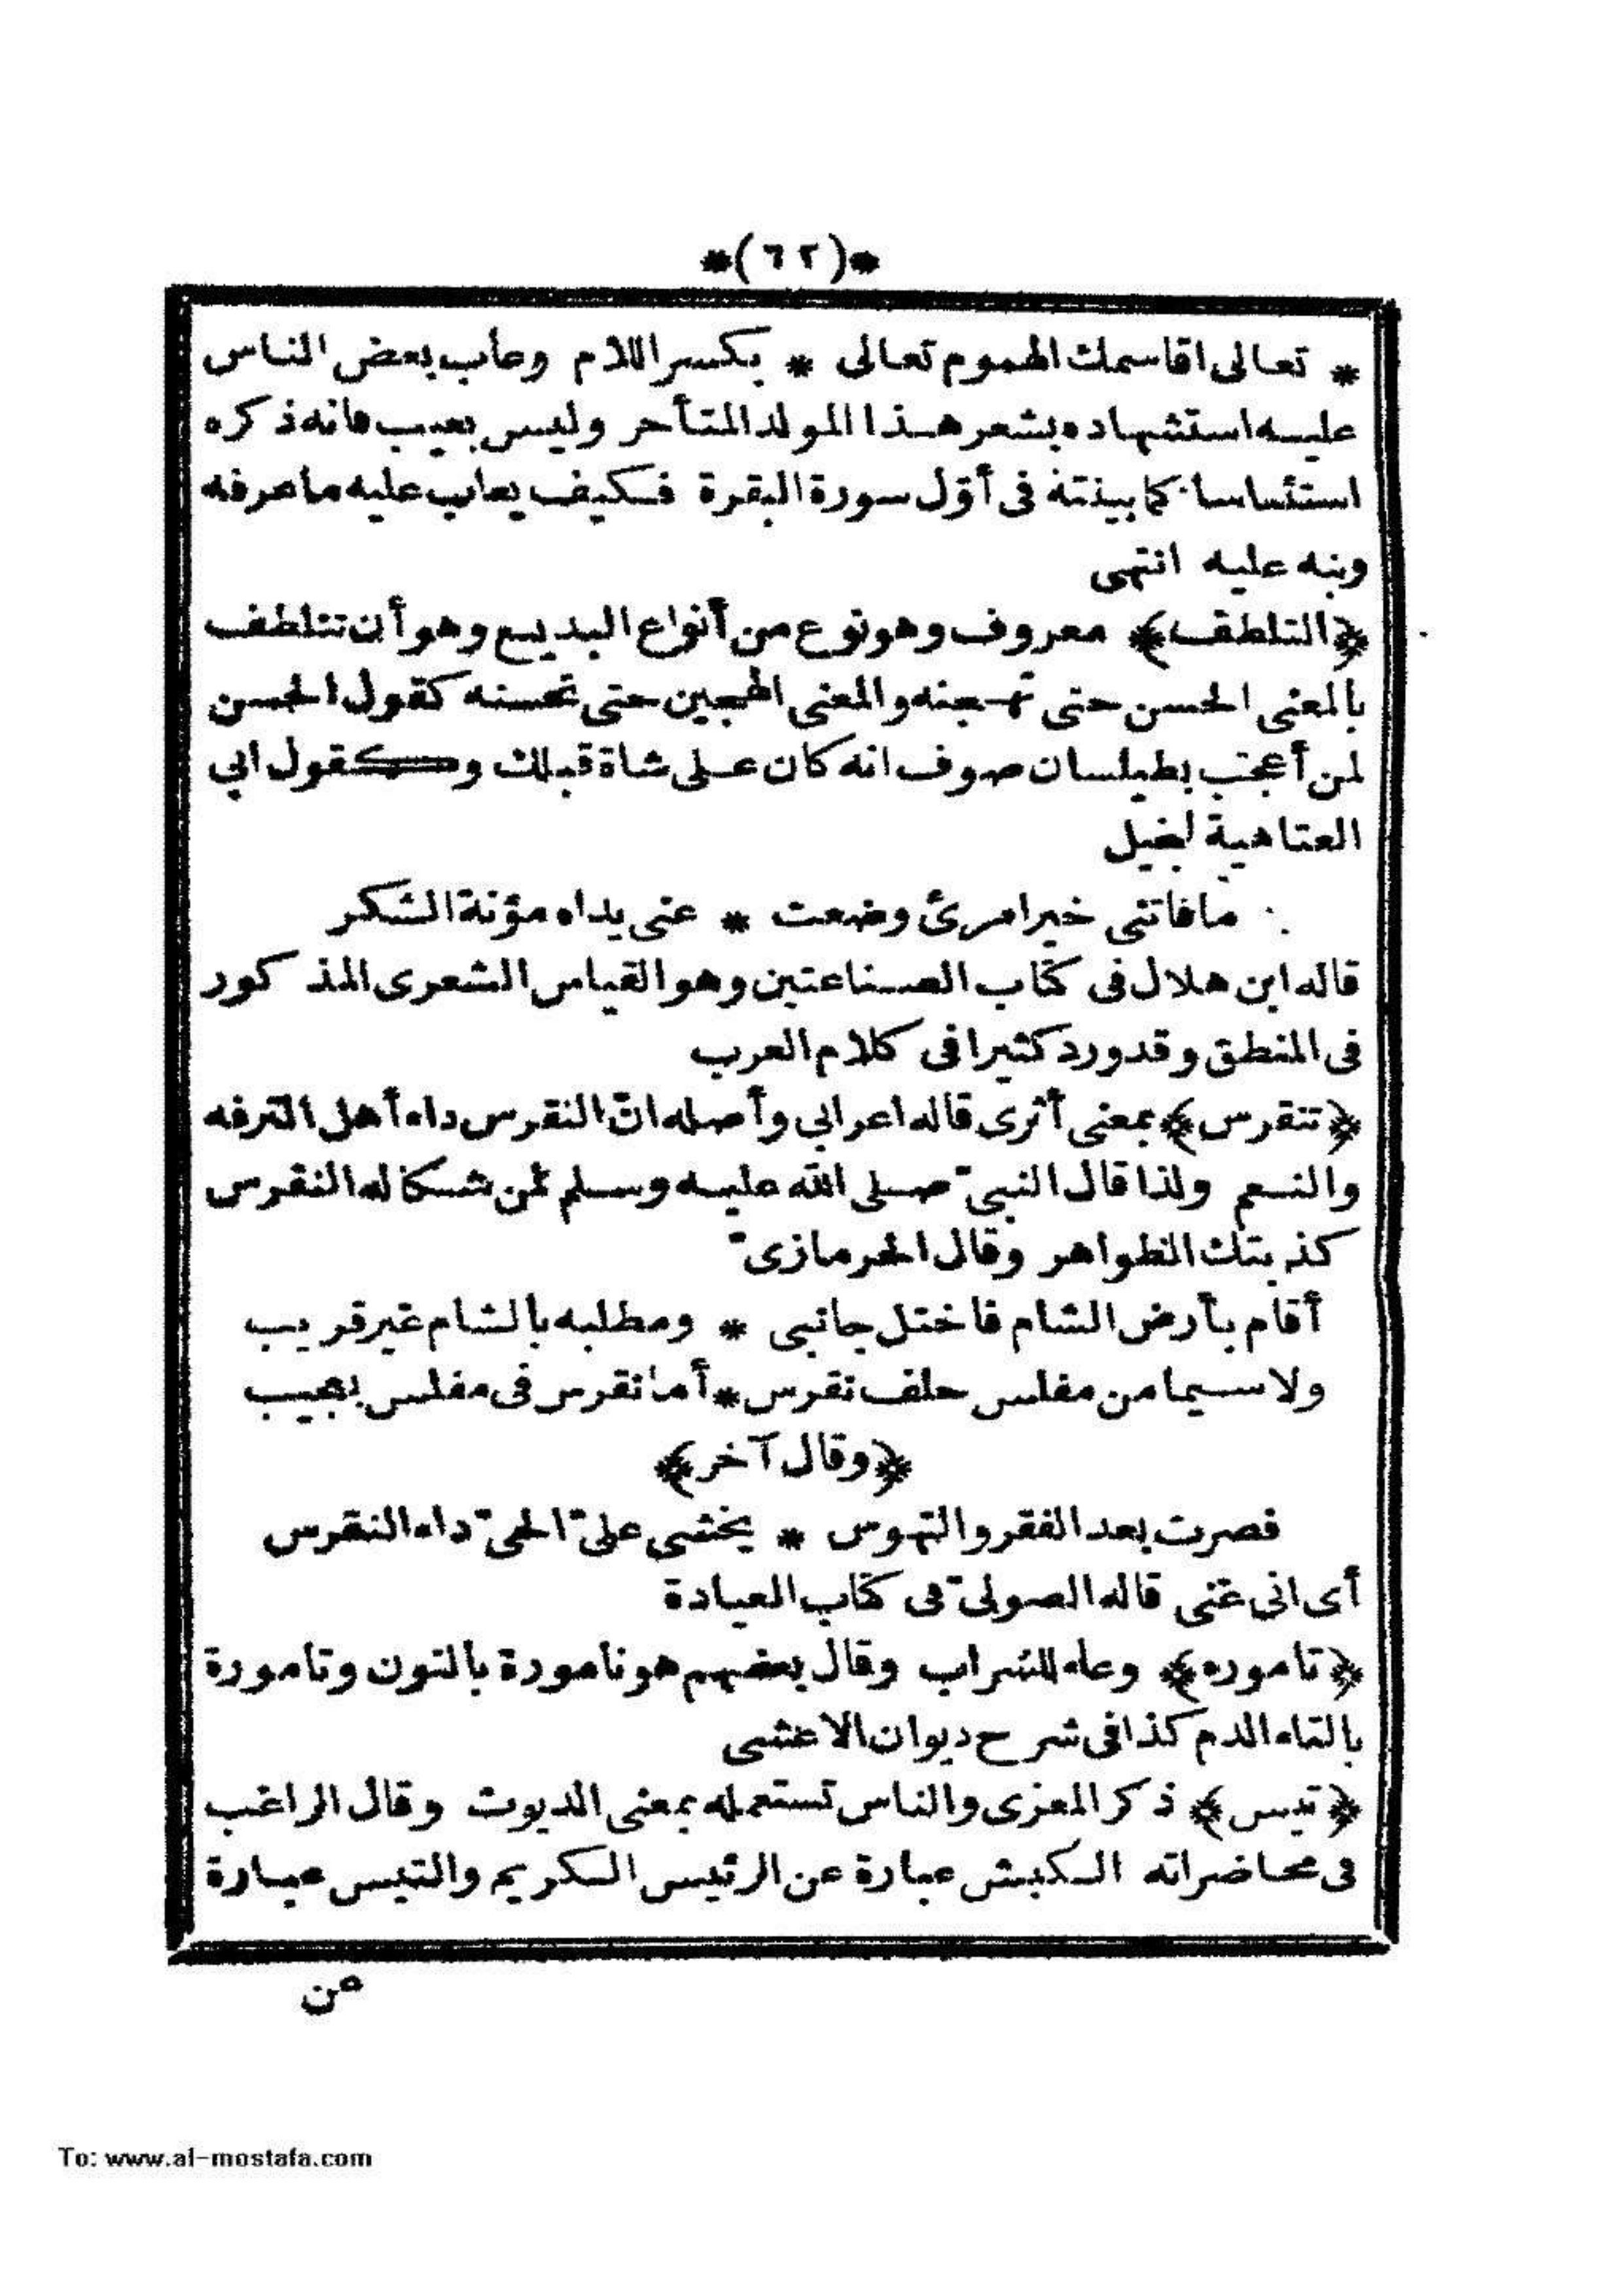 *(٦٢)*
* تعالى اقاسمك الهموم تعالى * بكسر اللام وعاب بعض الناس
عليه استشهاده بشعر هذا المولد المتأخر وليس بعيب فانه ذكره
استئناسا كما بينته فى أوّل سورة البقرة فكيف يعاب عليه ما عرفه
ونبه عليه انتهى
﴿التلطف﴾ معروف وهو نوع من أنواع البديع وهو أن تتلطف
بالمعنى الحسن حتى تهجنه والمعنى الهجين حتى تحسنه كقول الحسن
لمن أعجب بطيلسان صوف انه كان على شاة قبلك وكقول ابى
العتاهية لبخيل
ما فاتنى خير امرئ وضعت * عنى يداه مؤنة الشكر
قاله ابن هلال فى كتاب الصناعتين وهو القياس الشعرى المذكور
فى المنطق وقد ورد كثيرا فى كلام العرب
﴿تنقرس﴾ بمعنى أثرى قاله اعرابى وأصله انّ النقرس داء أهل الترفه
والنعم ولذا قال النبىّ صلى الله عليه وسلم لمن شكا له النقرس
كذبتك الظواهر وقال الحرمازىّ
أقام بأرض الشام فاختل جانبى * ومطلبه بالشام غير قريب
ولا سيما من مفلس حلف نقرس * أما نقرس فى مفلس بعجيب
﴿وقال آخر﴾
فصرت بعد الفقر والتهوس * يخشى علىّ الحىّ داء النقرس
أى انى غنى قاله الصولىّ فى كتاب العيادة
﴿تاموره﴾ وعاء للشراب وقال بعضهم هو نامورة بالنون وتامورة
بالتاء الدم كذا فى شرح ديوان الاعشى
﴿تيس﴾ ذكر المعزى والناس تستعمله بمعنى الديوث وقال الراغب
فى محاضراته الكبش عبارة عن الرئيس الكريم والتيس عبارة
عن
To: www.al-mostafa.com